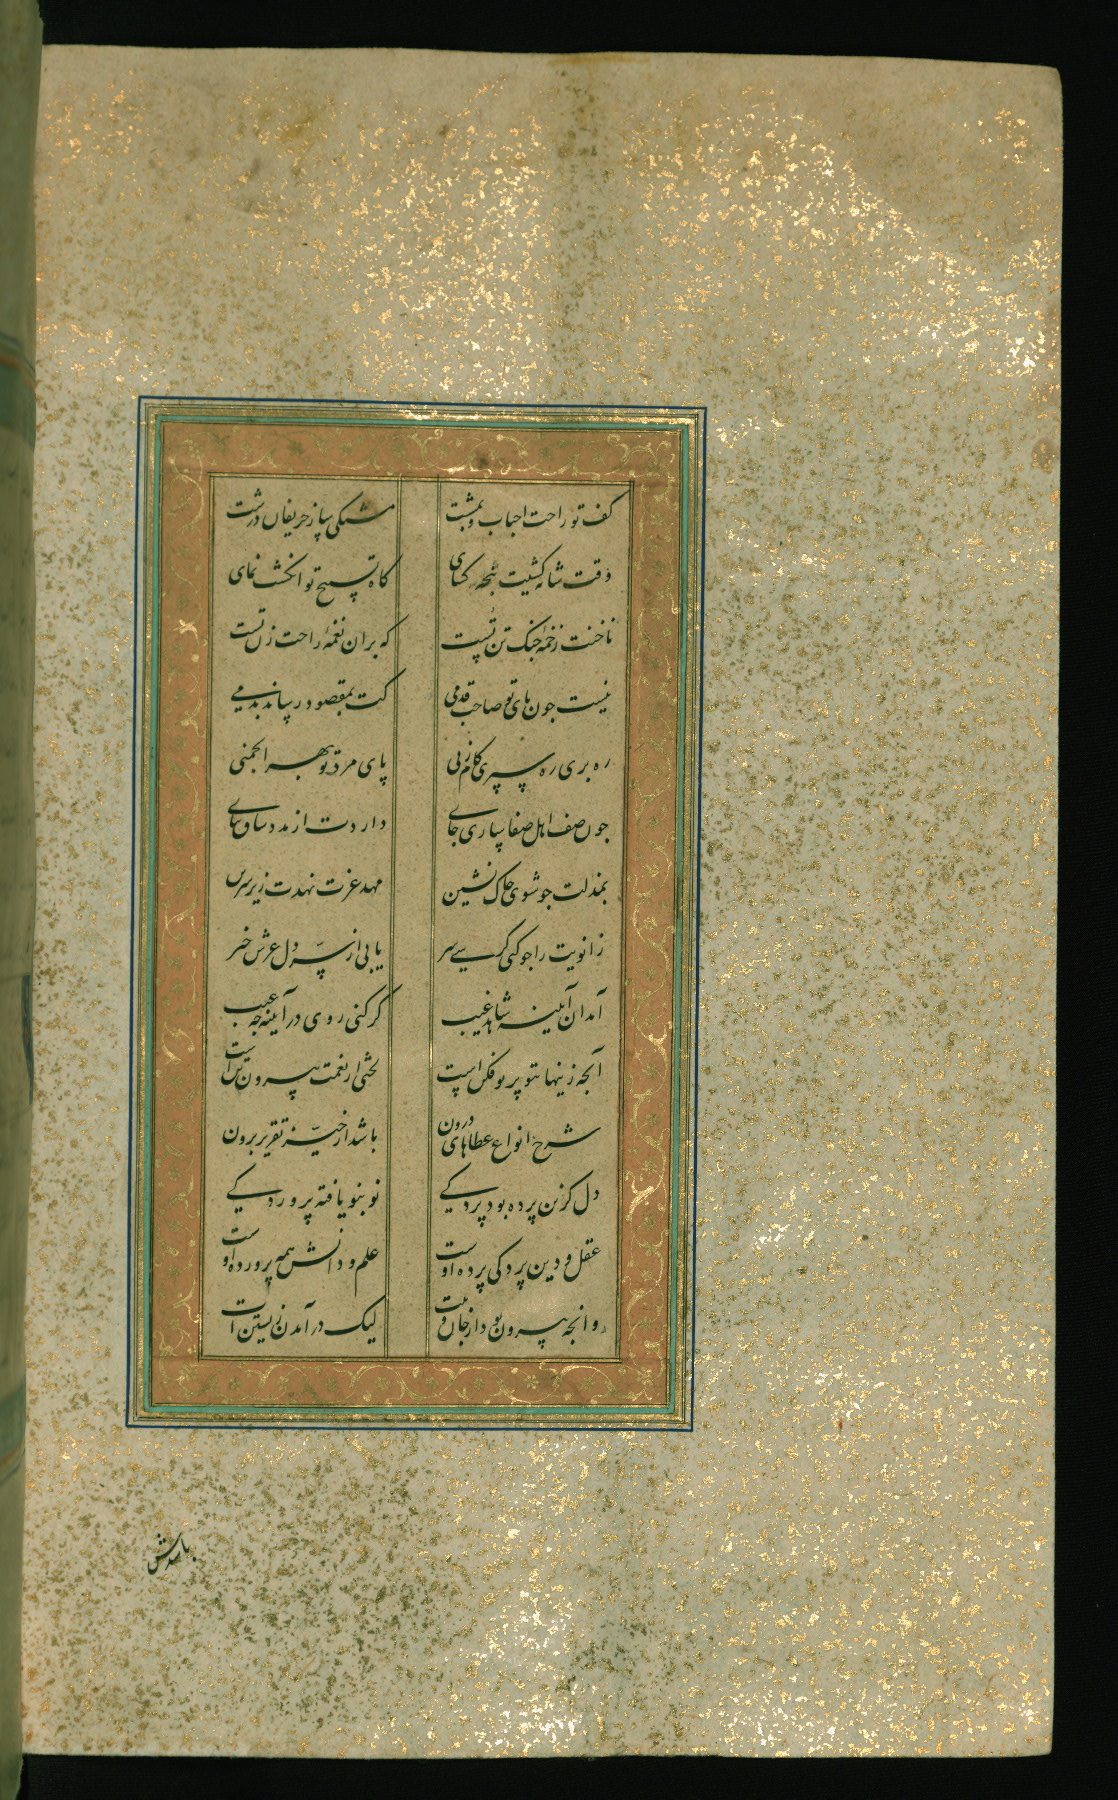 کف تو راحت احباب و بمشت
مشکی سار حریفان درشت
وقت شانه کشیت پنجه کشای
کاه تسبیح تو انکشت نمای
ناخنت زخمه چنک تن تست
که بران نغمهٔ راحت زن تست
نیست جون پای تو صاحب قدمی
کت بمقصود رساند بدمی
ره بری ره سپری کام زنی
پای مردت بهر انجمنی
جون صف اهل صفا سازی جای
داردت از مدد ساق بپای
بمذلت جو شوی خاک نشین
مهد عزت نهدت زیر سرین
زانویت را جو کنی کرسی سر
یابی از سر دل عرش خبر
آمد آن آینهٔ شاهد غیب
کر کنی روی در آیینه جه عیب
آنجه زینها بتو پرتو فکن است
بخشی از نعمت بیرون تن است
شرح انواع عطاهای درون
باشد از حیز تقریر برون
دل کزین پرده بود پردکیی
نو بنو یافته پروردکیی
عقل و دین پردکی پرده اوست
علم و دانش همه پرورده اوست
وانجه بیرون بود از جان و تنت
لیک در آمدن زیستن است